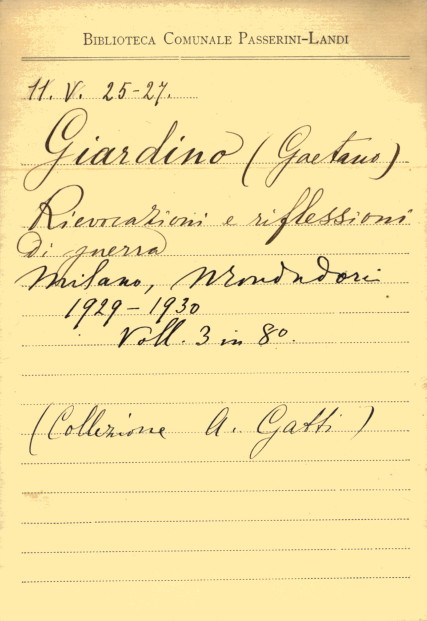 BIBLIOTECA COMUNALE PASSERINI-LANDI
11. V. 25-27.
Giardino (Gaetano)
Rievocazioni e riflessioni
di guerra
Milano, Mondadori
1929-1930
Voll. 3 in 8º.
(Collezione A. Gatti)